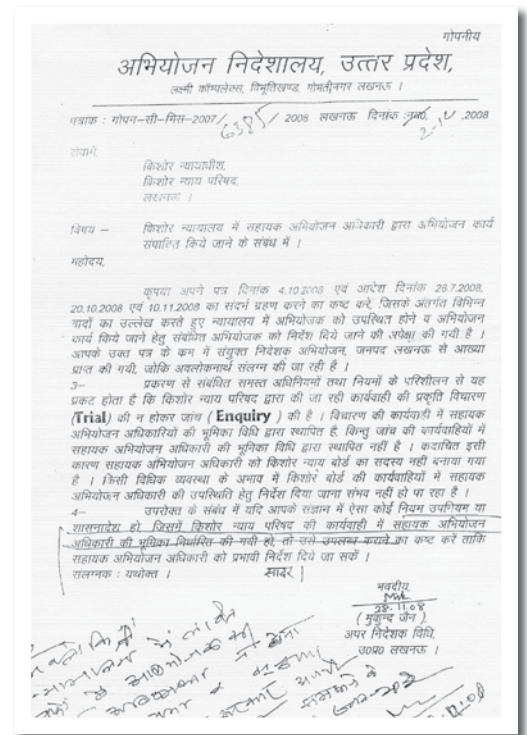 गोपनीय
अभियोजन निदेशालय, उत्तर प्रदेश,
लक्ष्मी कॉम्पलेक्स, विभूतिखण्ड, गोमतीनगर लखनऊ ।
पत्रांक : गोपन-सी-मिस-2007/ 6385/ 2008 लखनऊ दिनांक ,2008
सेवामें,
किशोर न्यायाधीश,
किशोर न्याय परिषद,
लखनऊ ।
विषय – किशोर न्यायालय में सहायक अभियोजन अधिकारी द्वारा अभियोजन कार्य
संपादित किये जाने के संबंध में ।
महोदय,
कृपया अपने पत्र दिनांक 4.10.2008 एवं आदेश दिनांक 26.7.2008,
20.10.2008 एवं 10.11.2008 का संदर्भ ग्रहण करने का कष्ट करें, जिसके अंतर्गत विभिन्न
वादों का उल्लेख करते हुए न्यायालय में अभियोजक को उपस्थित होने व अभियोजन
कार्य किये जाने हेतु संबंधित अभियोजक को निर्देश दिये जाने की अपेक्षा की गयी है ।
आपके उक्त पत्र के क्रम में संयुक्त निदेशक अभियोजन, जनपद लखनऊ से आख्या
प्राप्त की गयी, जोकि अवलोकनार्थ संलग्न की जा रही है ।
3– प्रकरण से संबंधित समस्त अधिनियमों तथा नियमों के परिशीलन से यह
प्रकट होता है कि किशोर न्याय परिषद द्वारा की जा रही कार्यवाही की प्रकृति विचारण
(Trial) की न होकर जांच ( Enquiry ) की है । विचारण की कार्यवाही में सहायक
अभियोजन अधिकारियों की भूमिका विधि द्वारा स्थापित है, किन्तु जांच की कार्यवाहियों में
सहायक अभियोजन अधिकारी की भूमिका विधि द्वारा स्थापित नहीं है । कदाचित इसी
कारण सहायक अभियोजन अधिकारी को किशोर न्याय बोर्ड का सदस्य नहीं बनाया गया
है । किसी विधिक व्यवस्था के अभाव में किशोर बोर्ड की कार्यवाहियों में सहायक
अभियोजन अधिकारी की उपस्थिति हेतु निर्देश दिया जाना संभव नहीं हो पा रहा है ।
4– उपरोक्त के संबंध में यदि आपके संज्ञान में ऐसा कोई नियम उपनियम या
शासनादेश हो, जिसमें किशोर न्याय परिषद की कार्यवाही में सहायक अभियोजन
अधिकारी की भूमिका निर्धारित की गयी हो, तो उसे उपलब्ध कराने का कष्ट करें ताकि
सहायक अभियोजन अधिकारी को प्रभावी निर्देश दिये जा सकें ।
संलग्नक : यथोक्त । सादर |
भवदीय,
28.11.08
( मुकुन्द जैन ),
अपर निदेशक विधि,
उ०प्र० लखनऊ ।